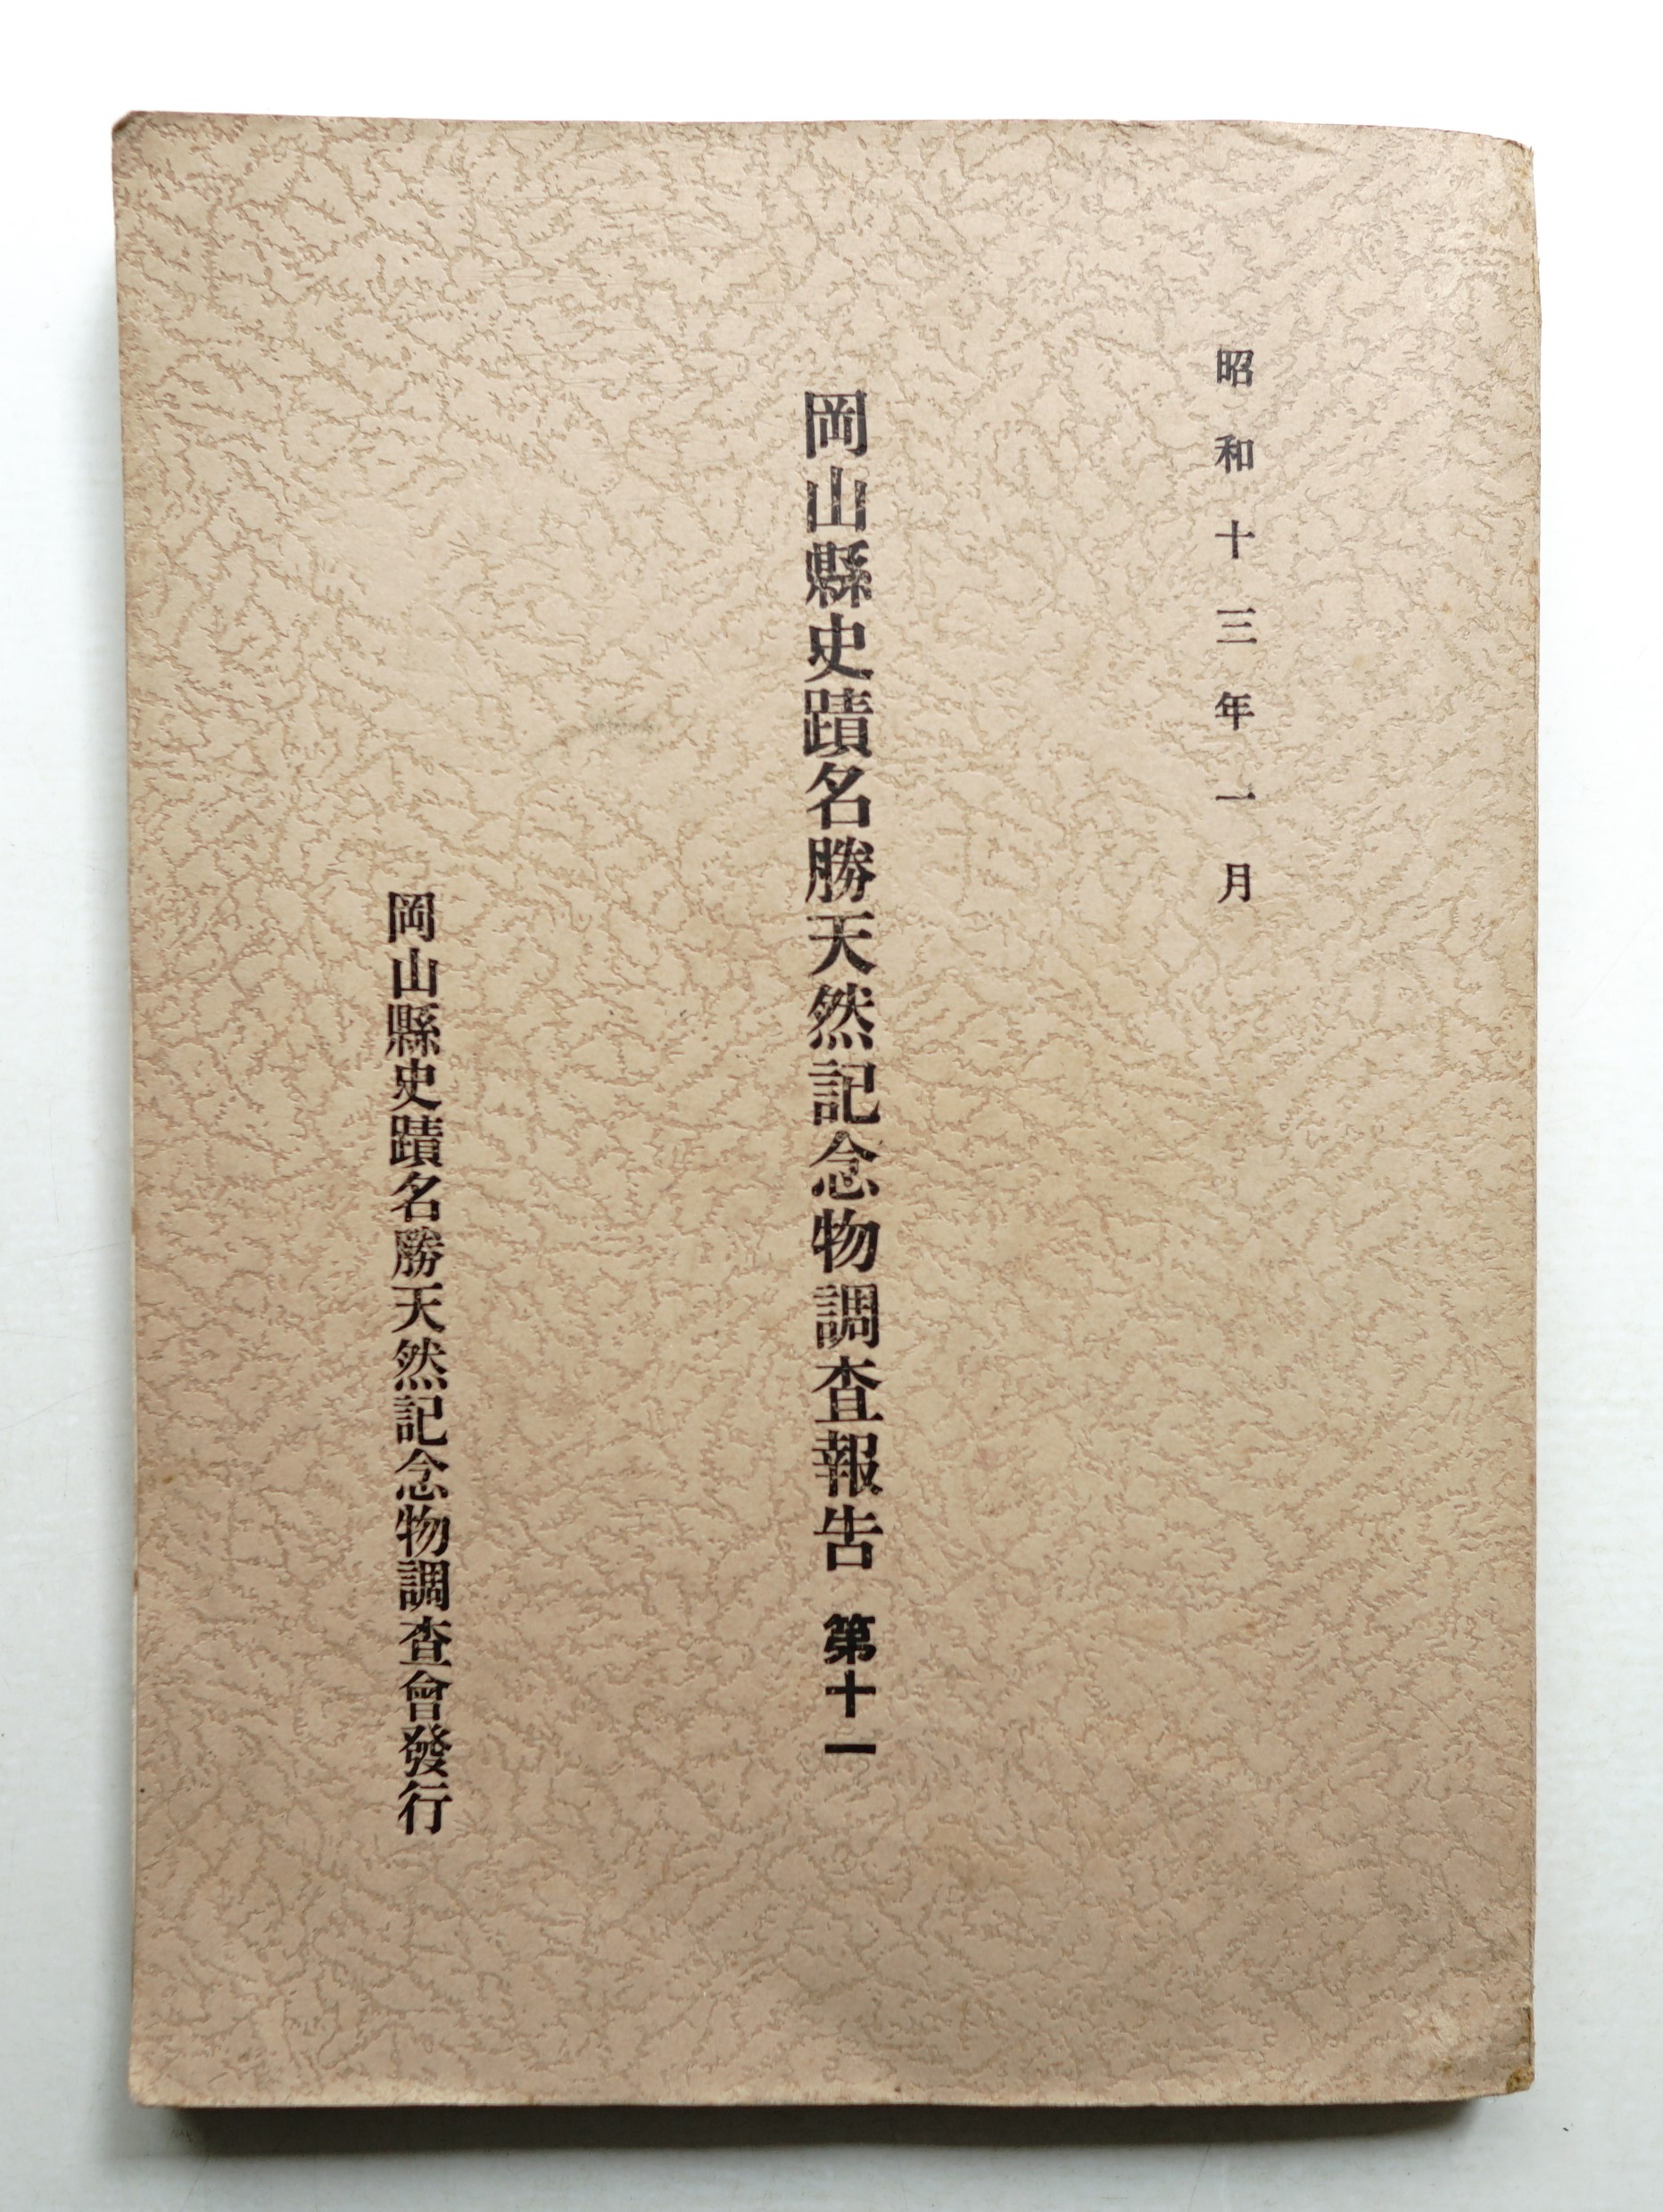 昭和十三年一月
岡山縣史蹟名勝天然記念物調査報告 第十一
岡山縣史蹟名勝天然記念物調査會發行